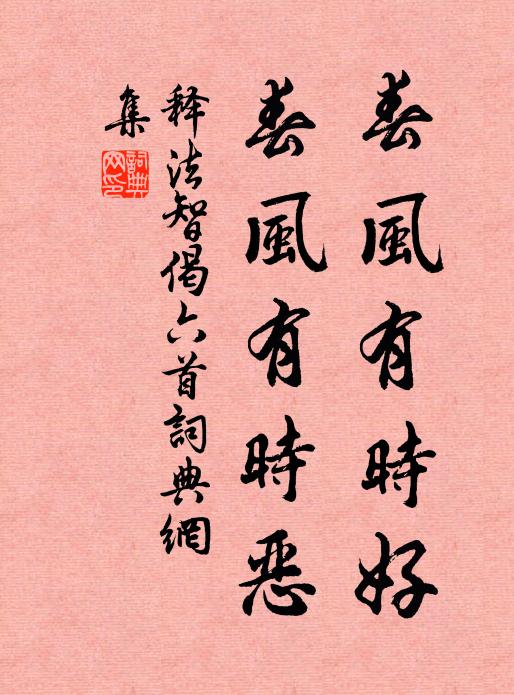 春風有時好
春風有時惡
释法智偈六首詞典網
集
詞典
网印